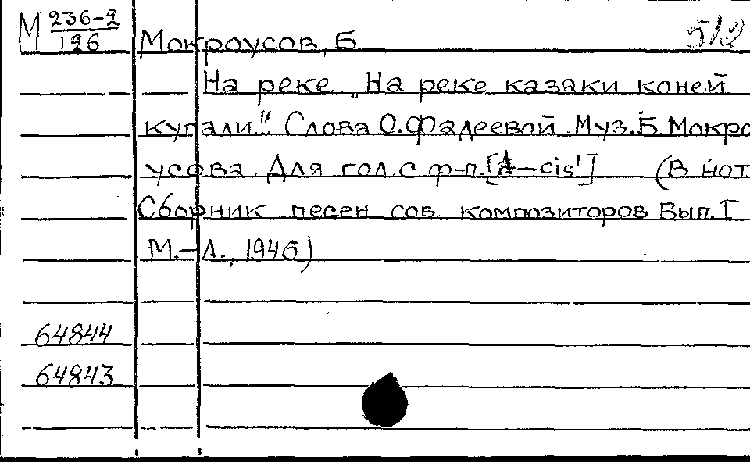 М 236-2/126 Мокроусов, Б
На реке „На реке казаки коней
купали." Слова О.Фадеевой. Муз. Б Мокро
усова. Для гол. с ф-п. [A-cis'] (В нот
Сборник песен сов. композиторов Вып. I
М.-Л., 1946)
64844
64843